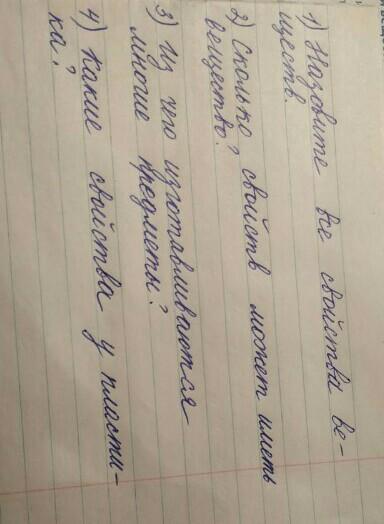 1) Назовите все свойства ве-
ществ.
2) Сколько свойств может иметь
вещество?
3) Из чего изготавливаются
многие предметы?
4) Какие свойства у пласти-
ка?